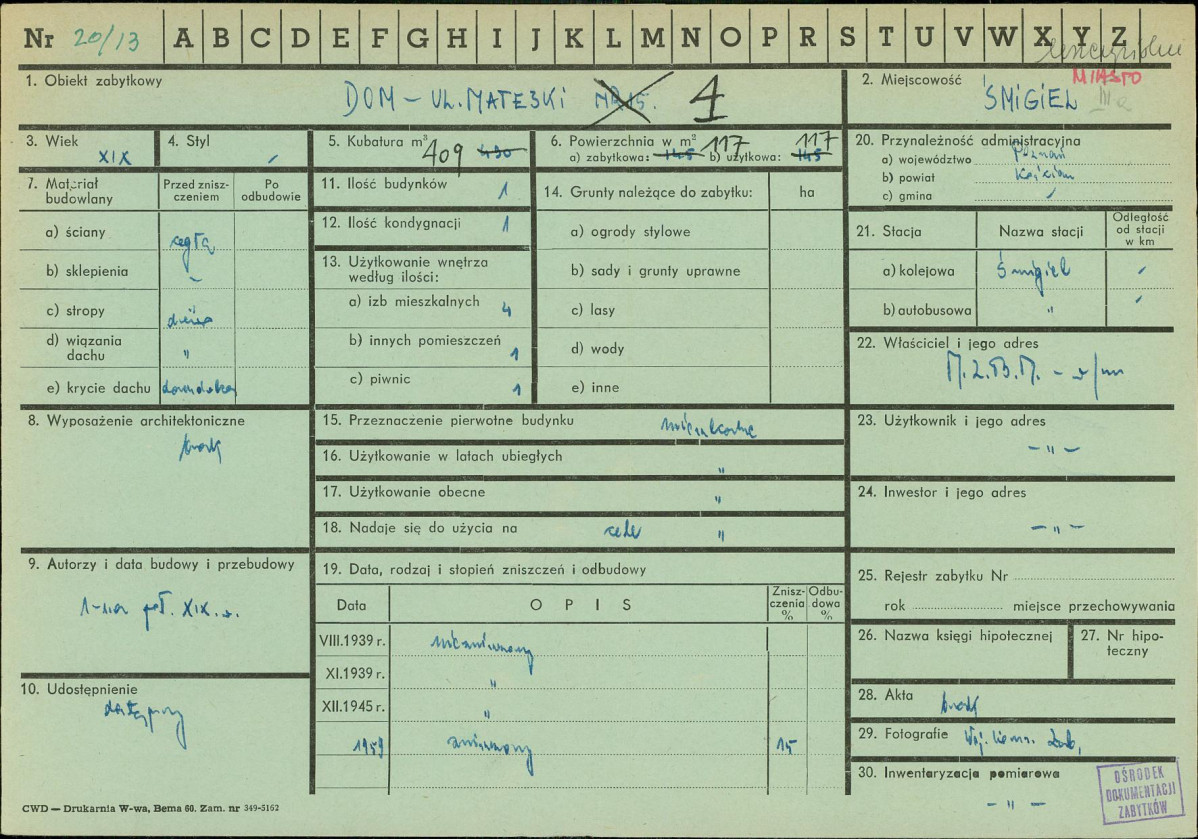 Nr 20/13 A B C D E F G H I J K L M N O P R S T U V W X Y Z
1. Obiekt zabytkowy
DOM – UL. MATEJKI NR 15. 1
2. Miejscowość MIASTO
ŚMIGIEL III a
3. Wiek XIX
4. Styl
5. Kubatura m³ 409 490
6. Powierzchnia w m² 117 117
a) zabytkowa: 145 b) użytkowa: 145
20. Przynależność administracyjna
a) województwo Poznań
b) powiat Kościan
c) gmina
7. Materiał budowlany
Przed zniszczeniem
Po odbudowie
a) ściany cegła
b) sklepienia –
c) stropy
d) wiązania dachu "
e) krycie dachu
11. Ilość budynków 1
12. Ilość kondygnacji 1
13. Użytkowanie wnętrza według ilości:
a) izb mieszkalnych 4
b) innych pomieszczeń 1
c) piwnic 1
14. Grunty należące do zabytku: ha
a) ogrody stylowe
b) sady i grunty uprawne
c) lasy
d) wody
e) inne
21. Stacja
Nazwa stacji
Odległość od stacji w km
a) kolejowa Śmigiel
b) autobusowa "
22. Właściciel i jego adres
M.Z.B.M. – w/m
8. Wyposażenie architektoniczne
brak
15. Przeznaczenie pierwotne budynku mieszkalne
16. Użytkowanie w latach ubiegłych "
17. Użytkowanie obecne "
18. Nadaje się do użycia na cele "
23. Użytkownik i jego adres
– " –
24. Inwestor i jego adres
– " –
9. Autorzy i data budowy i przebudowy
1-sza poł. XIX. w.
10. Udostępnienie
dostępny
19. Data, rodzaj i stopień zniszczeń i odbudowy
Data OPIS Zniszczenia % Odbudowa %
VIII.1939 r. niezniszczony
XI.1939 r. "
XII.1945 r. "
1959 zniszczony 15
25. Rejestr zabytku Nr
rok miejsce przechowywania
26. Nazwa księgi hipotecznej
27. Nr hipoteczny
28. Akta brak
29. Fotografie Woj. Kons. Zab.
30. Inwentaryzacja pomiarowa
– " –
OŚRODEK
DOKUMENTACJI
ZABYTKÓW
CWD — Drukarnia W-wa, Bema 60. Zam. nr 349-5162